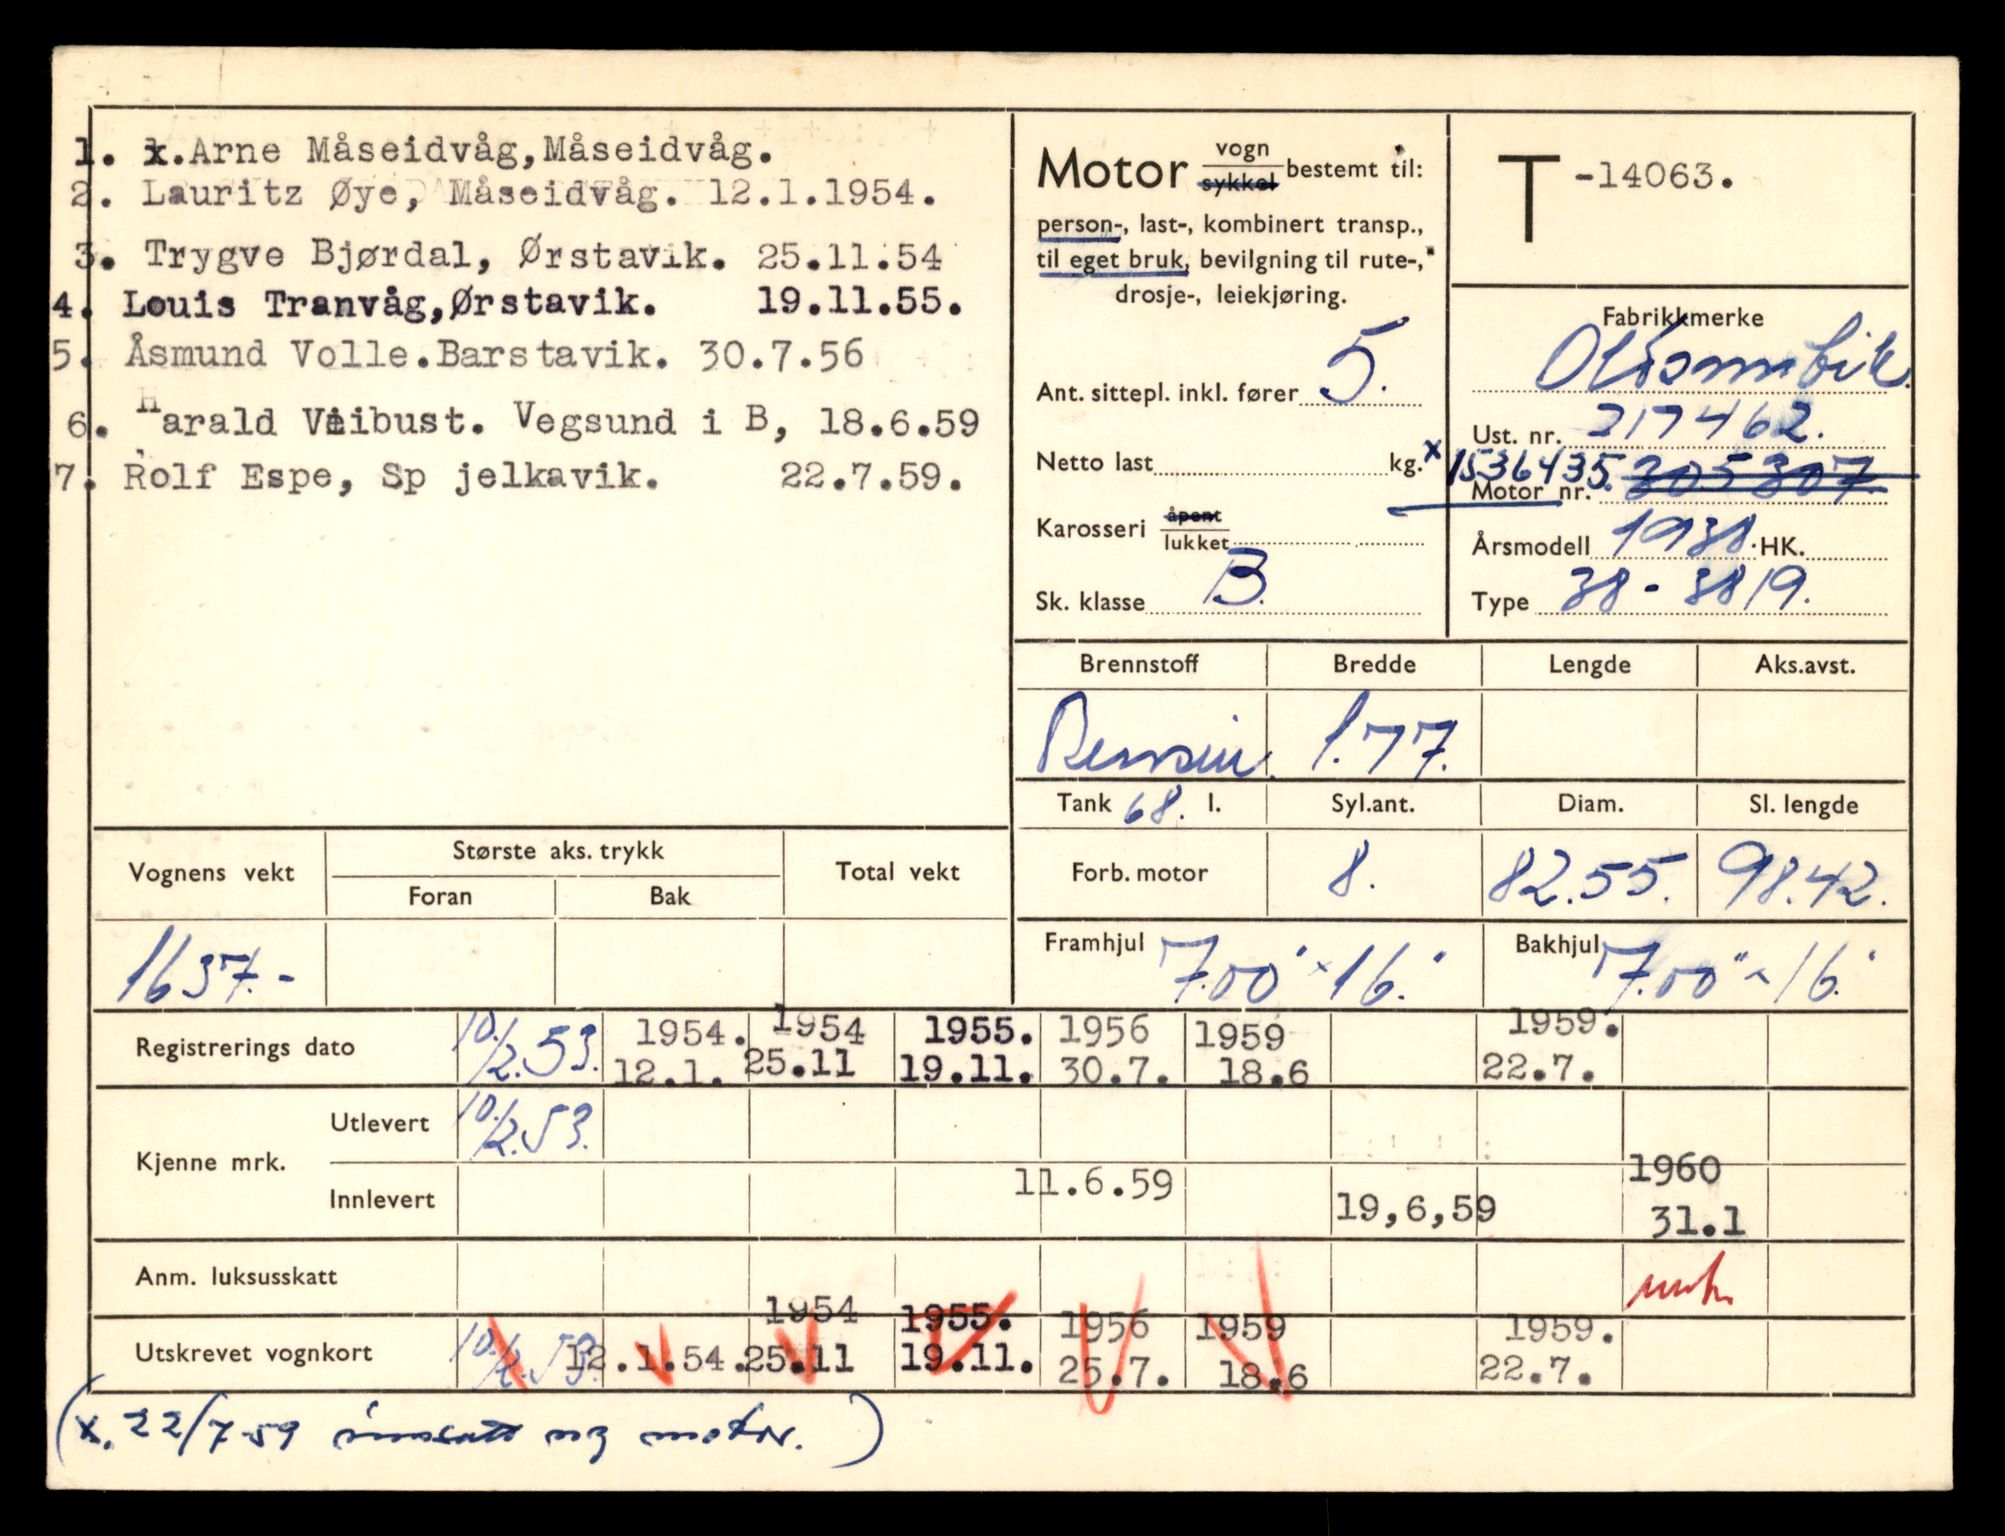 1. x.Arne Måseidvåg,Måseidvåg.
2. Lauritz Øye, Måseidvåg. 12.1.1954.
3. Trygve Bjørdal, Ørstavik. 25.11.54
4. Louis Tranvåg,Ørstavik. 19.11.55.
5. Åsmund Volle.Barstavik. 30.7.56
6. Harald Veibust. Vegsund i B, 18.6.59
7. Rolf Espe, Sp jelkavik. 22.7.59.
Motor vogn sykkel bestemt til:
person-, last-, kombinert transp.,
til eget bruk, bevilgning til rute-,
drosje-, leiekjøring.
Ant. sittepl. inkl. fører 5.
Netto last kg.
Karosseri åpent lukket
Sk. klasse B.
T -14063.
Fabrikkmerke
Oldsmobile
Ust. nr. 217462.
x 1536435. 305307.
Motor nr.
Årsmodell 1938. HK.
Type 38-3819.
Brennstoff Bredde Lengde Aks.avst.
Bensin. 1.77.
Tank 68. l. Syl.ant. Diam. Sl. lengde
Forb. motor 8. 82.55. 98.42.
Framhjul 7.00" x 16." Bakhjul 7.00" x 16."
Vognens vekt Største aks. trykk Total vekt
Foran Bak
1637.-
Registrerings dato 10./2.53. 1954. 12.1. 1954 25.11 1955. 19.11. 1956 30.7. 1959 18.6 1959. 22.7.
Kjenne mrk. Utlevert 10./2.53.
Innlevert 11.6.59 19,6,59 1960 31.1
Anm. luksusskatt
Utskrevet vognkort 10./2.53. 12.1.54. 1954 25.11 1955. 19.11. 1956 25.7. 1959 18.6 1959. 22.7.
(x. 22/7-59 innsatt ny motor. )